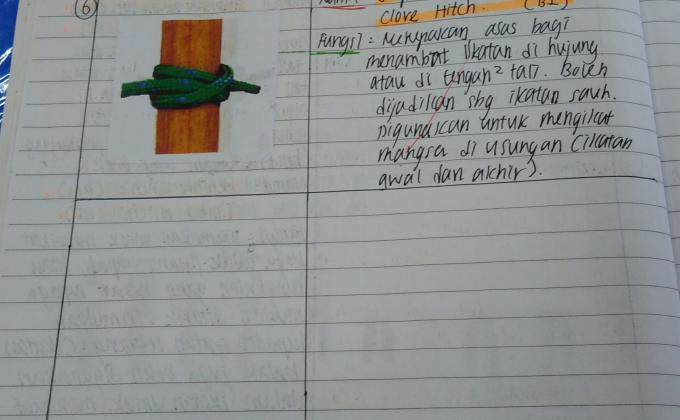 6
Clove Hitch. (BI)
Fungsi = Merupakan asas bagi
menambat ikatan di hujung
atau di tengah² tali. Boleh
dijadikan sbg ikatan sauh.
Digunakan untuk mengikat
mangsa di usungan (ikatan
awal dan akhir).